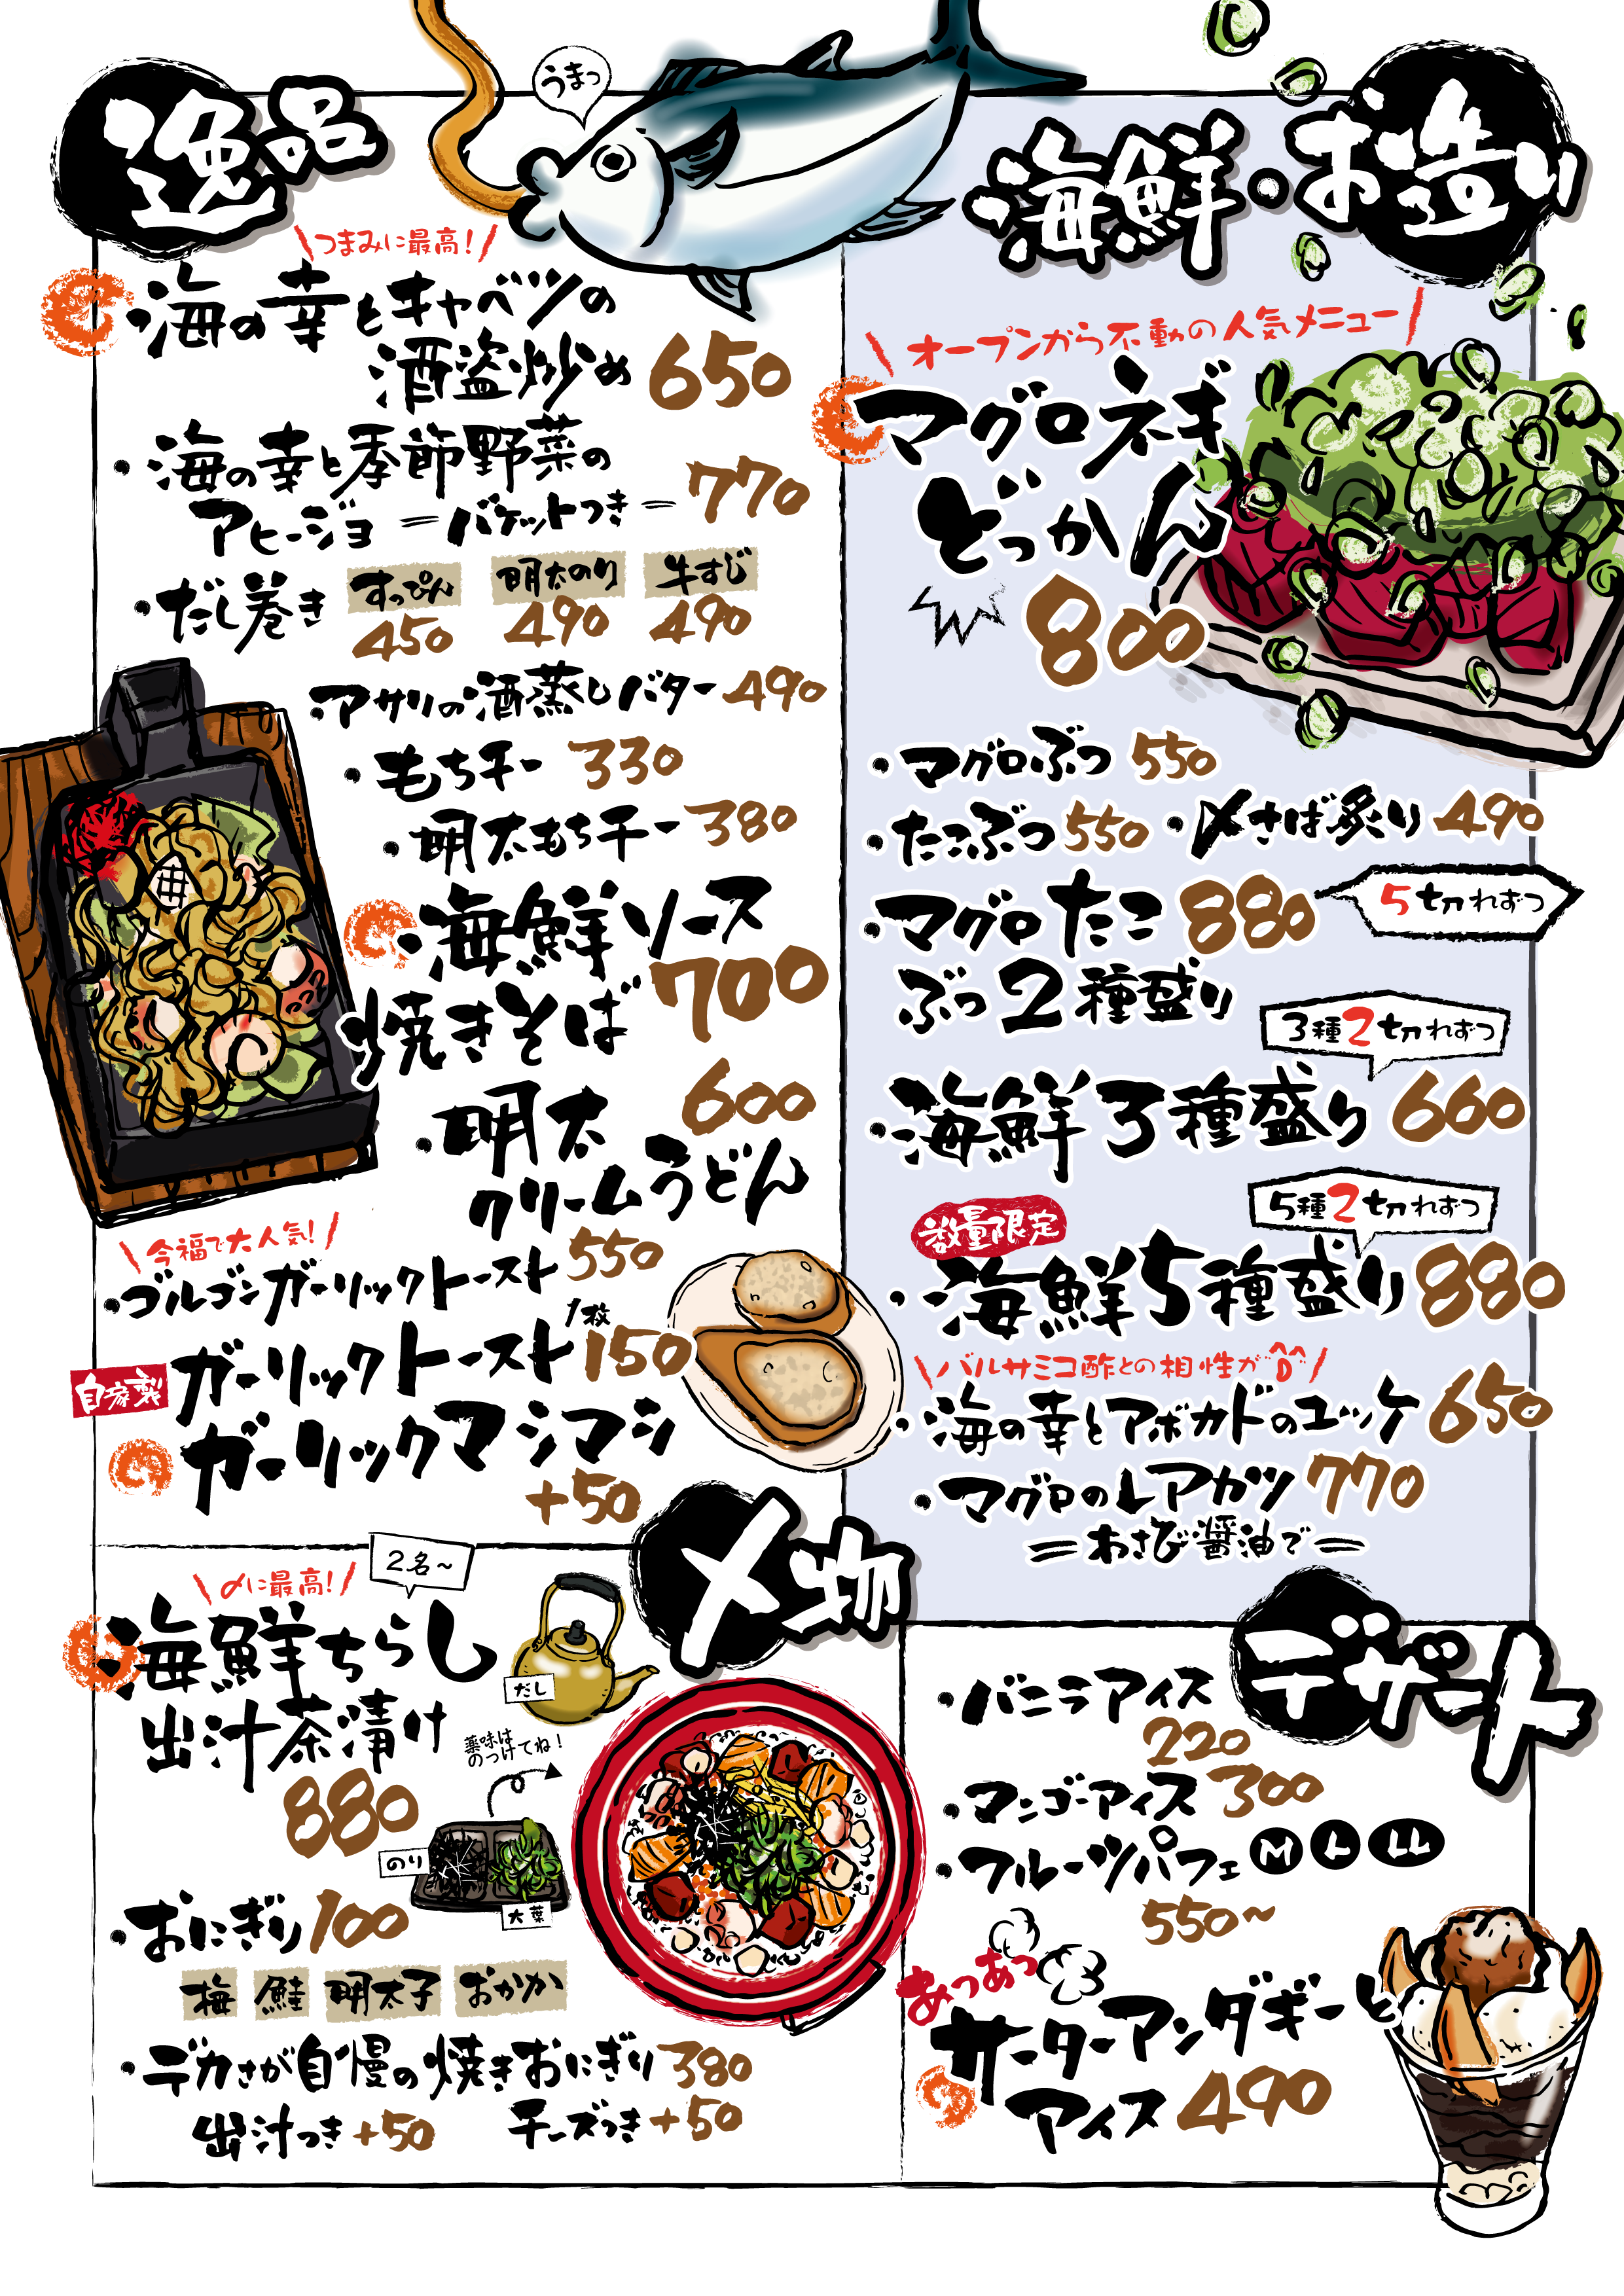 うまっ
逸品
つまみに最高!
海の幸とキャベツの
酒盗炒め 650
・海の幸と季節野菜の
アヒージョ =バケットつき= 770
・だし巻き すっぴん 450 明太のり 490 牛すじ 490
・アサリの酒蒸しバター 490
・もちチー 330
・明太もちチー 380
・海鮮ソース
焼きそば 700
・明太
クリームうどん 600
今福で大人気!
・ゴルゴンガーリックトースト 550
自家製 ガーリックトースト 1枚 150
ガーリックマシマシ
+50
海鮮・お造り
オープンから不動の人気メニュー
マグロネギ
どっかん
800
・マグロぶつ 550
・たこぶつ 550 ・〆さば炙り 490
・マグロたこ
ぶつ2種盛り 880
5切れずつ
3種2切れずつ
・海鮮3種盛り 660
5種2切れずつ
数量限定
・海鮮5種盛り 880
バルサミコ酢との相性が
・海の幸とアボカドのユッケ 650
・マグロのレアカツ 770
=わさび醤油で=
〆物
〆に最高!
2名~
・海鮮ちらし
出汁茶漬け
880
だし
薬味は
のっけてね!
のり
大葉
・おにぎり 100
梅 鮭 明太子 おかか
・デカさが自慢の焼きおにぎり 380
出汁つき +50 チーズつき +50
デザート
・バニラアイス
220
・マンゴーアイス 300
・フルーツパフェ M L LL
550~
あつあつ
サーターアンダギーと
アイス 490